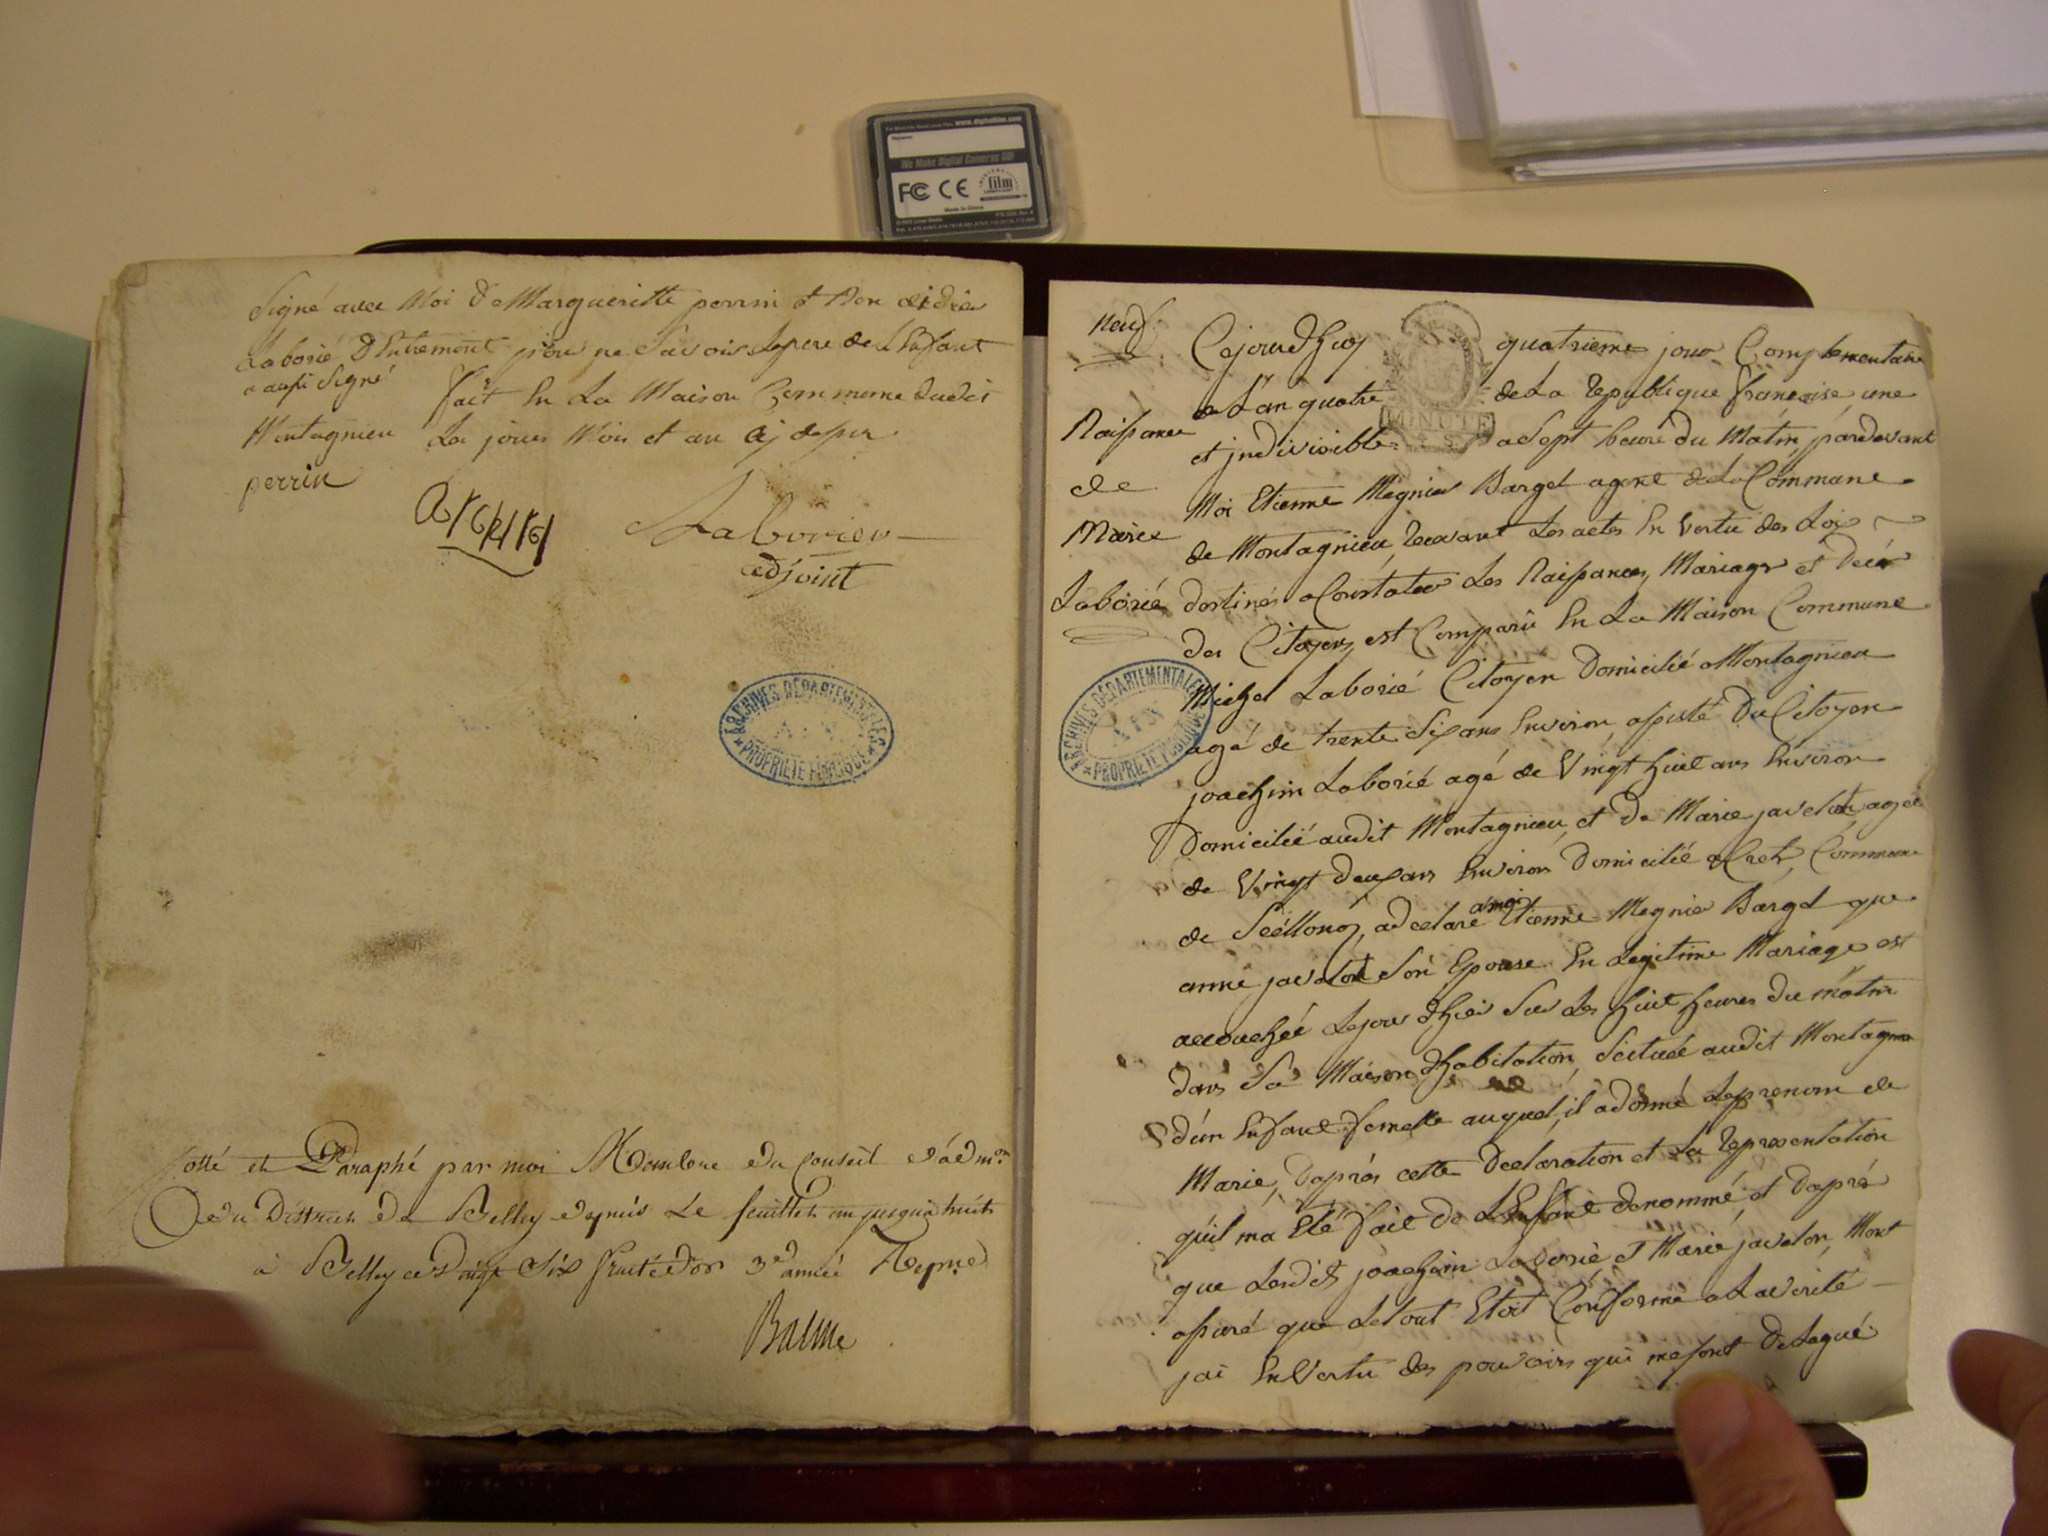 www.digitalfilm.com
We Make Digital Cameras GO!
FC CE film
Made in China
Signé avec Moi de Margueritte perrin et
Laborié D'Entremont pour ne Savoir Le pere de L'Enfant
a aussi Signé fait En La Maison Commune dudit
Montagnieu Les jours Mois et an que dessus
perrin
Laborier
adjoint
ARCHIVES DÉPARTEMENTALES
AIN
PROPRIÉTÉ PUBLIQUE
Cotté et Paraphé par moi Membre du Conseil d'adm.on
du District de Belley depuis Le feuillet un jusqu'a huit
à Belley ce vingt Six fructidor 3e année Repne
Balme
neuf.
Naissance
de
Marie
Laborié
MINUTE
Cejourdhuy quatrieme jour Complementaire
de L'an quatre de La republique françoise une
et jndivisible a Sept heure du Matin, pardevant
Moi Etienne Megnier Barget agent de La Commune
de Montagnieu, recevant Les actes En Vertu des Loix
destinés a Constater Les Naissances, Mariages et Deces
des Citoyens, est Comparû En La Maison Commune
Michel Laborié Citoyen Domicilié a Montagnieu
agé de trente Six ans Environ, assisté Du Citoyen
joachim Laborié agé de Vingt huit ans Environ
ARCHIVES DÉPARTEMENTALES
AIN
PROPRIÉTÉ PUBLIQUE
Domicilié audit Montagnieu, et De Marie javelot, agée
de Vingt deux ans Environ Domicilié a Commune
de a declaré a moi Etienne Megnier Barget que
anne javelot Son Epouse En Legitime Mariage est
accouchée Lejour d'hier Sur Les huit heures du matin
dans Sa Maison d'habitation, Scituée audit Montagnieu
d'un Enfant femelle auquel, il a donné Leprenom de
Marie, D'aprés cette Declaration et La representation
quil ma Eté fait de L'Enfant denommé, et D'aprés
que Lesdits joachim Laborié et Marie javelon, M'ont
assuré que Letout Etoit Conforme a Laverité
jai En Vertu des pouvoirs qui me sont Delegué